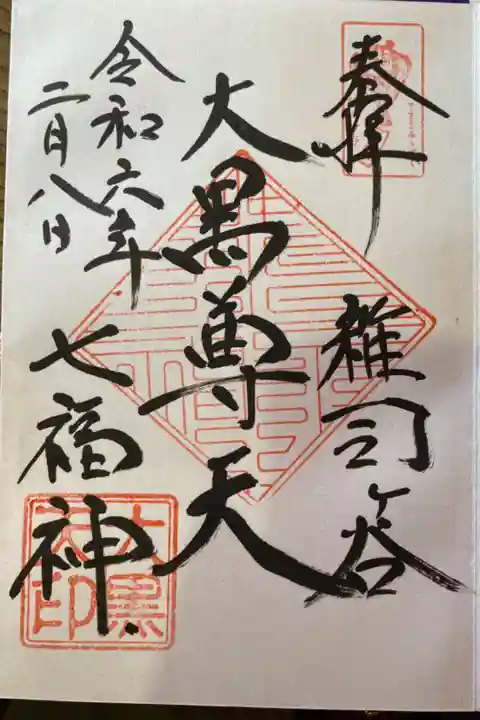 奉拝
雑司ヶ谷
大黒尊天
令和六年
二月八日
七福神
大黒
天印